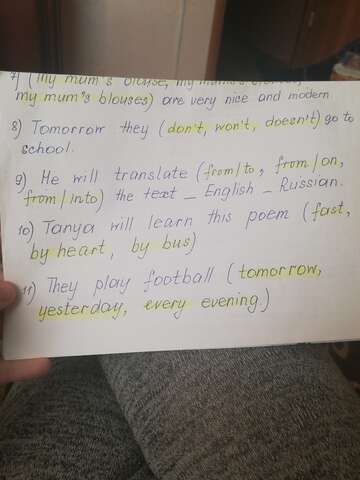 7) (my mum's blouse, my
my mum's blouses) are very nice and modern
8) Tomorrow they (don't, won't, doesn't) go to
school.
9) He will translate (from/to, from/on,
from/into) the text _ English _ Russian.
10) Tanya will learn this poem (fast,
by heart, by bus)
11) They play football (tomorrow,
yesterday, every evening)